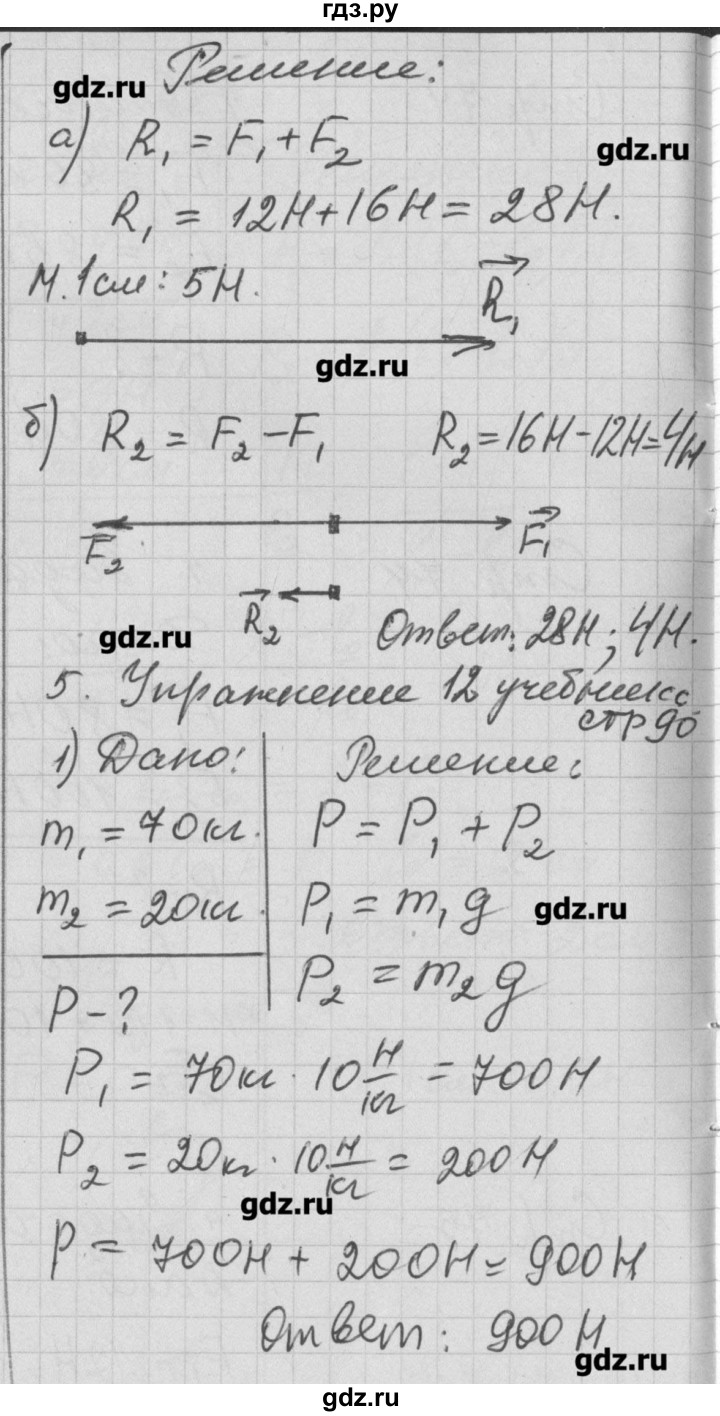 гдз.ру
Решение:
gdz.ru
а) R₁ = F₁ + F₂
gdz.ru
R₁ = 12Н + 16Н = 28Н.
М. 1см: 5Н.
R₁
gdz.ru
б) R₂ = F₂ - F₁ R₂ = 16Н - 12Н = 4Н
F₂ F₁
R₂
gdz.ru
Ответ: 28Н; 4Н.
5. Упражнение 12 учебника
стр 90
1) Дано: Решение:
m₁ = 70кг. P = P₁ + P₂
m₂ = 20кг. P₁ = m₁g
gdz.ru
P₂ = m₂g
P - ?
P₁ = 70кг · 10 Н/кг = 700Н
P₂ = 20кг · 10 Н/кг = 200Н
gdz.ru
P = 700Н + 200Н = 900Н
Ответ: 900Н
gdz.ru
gdz.ru